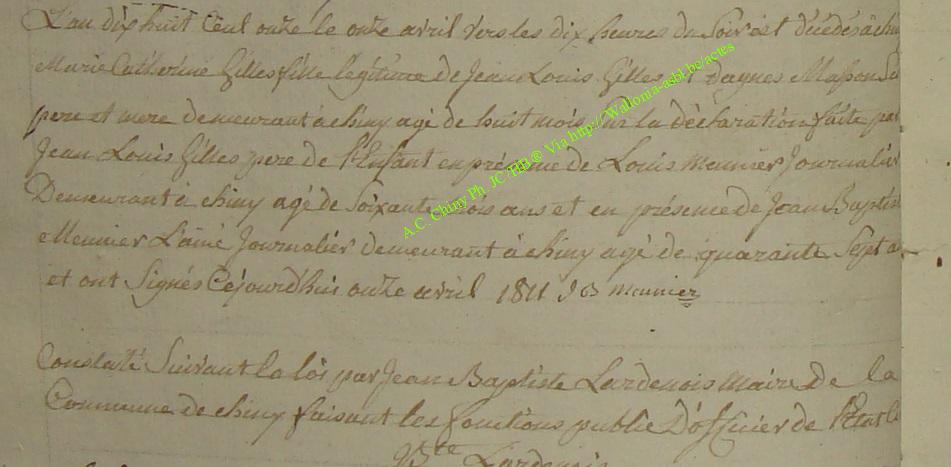 L'an dix huit Cent onze le onze avril vers les dix heures du Soir est décédés à chiny
Marie Catherine Gilles fille legitime de Jean Louis Gilles et dagnes Masson
pere et mere demeurant a chiny agé de huit mois Sur la déclaration faite par
Jean Louis Gilles pere de l'Enfant en présence de Louis Meunier Journalier
Demeurant à chiny agé de Soixante trois ans et en présence de Jean Baptist
Meunier L'ainé Journalier demeurant à chiny agé de quarante Sept a
et ont Signés Cejourdhui onze avril 1811 J B meunier
Constaté Suivant la loi par Jean Baptiste Lardenois Maire De la
Commune de chiny faisant les fonctions public D'officier de l'Etat Ci
Bte Lardenois
A.C. Chiny Ph. JC HB® Via http://Wallonia-asbl.be/actes